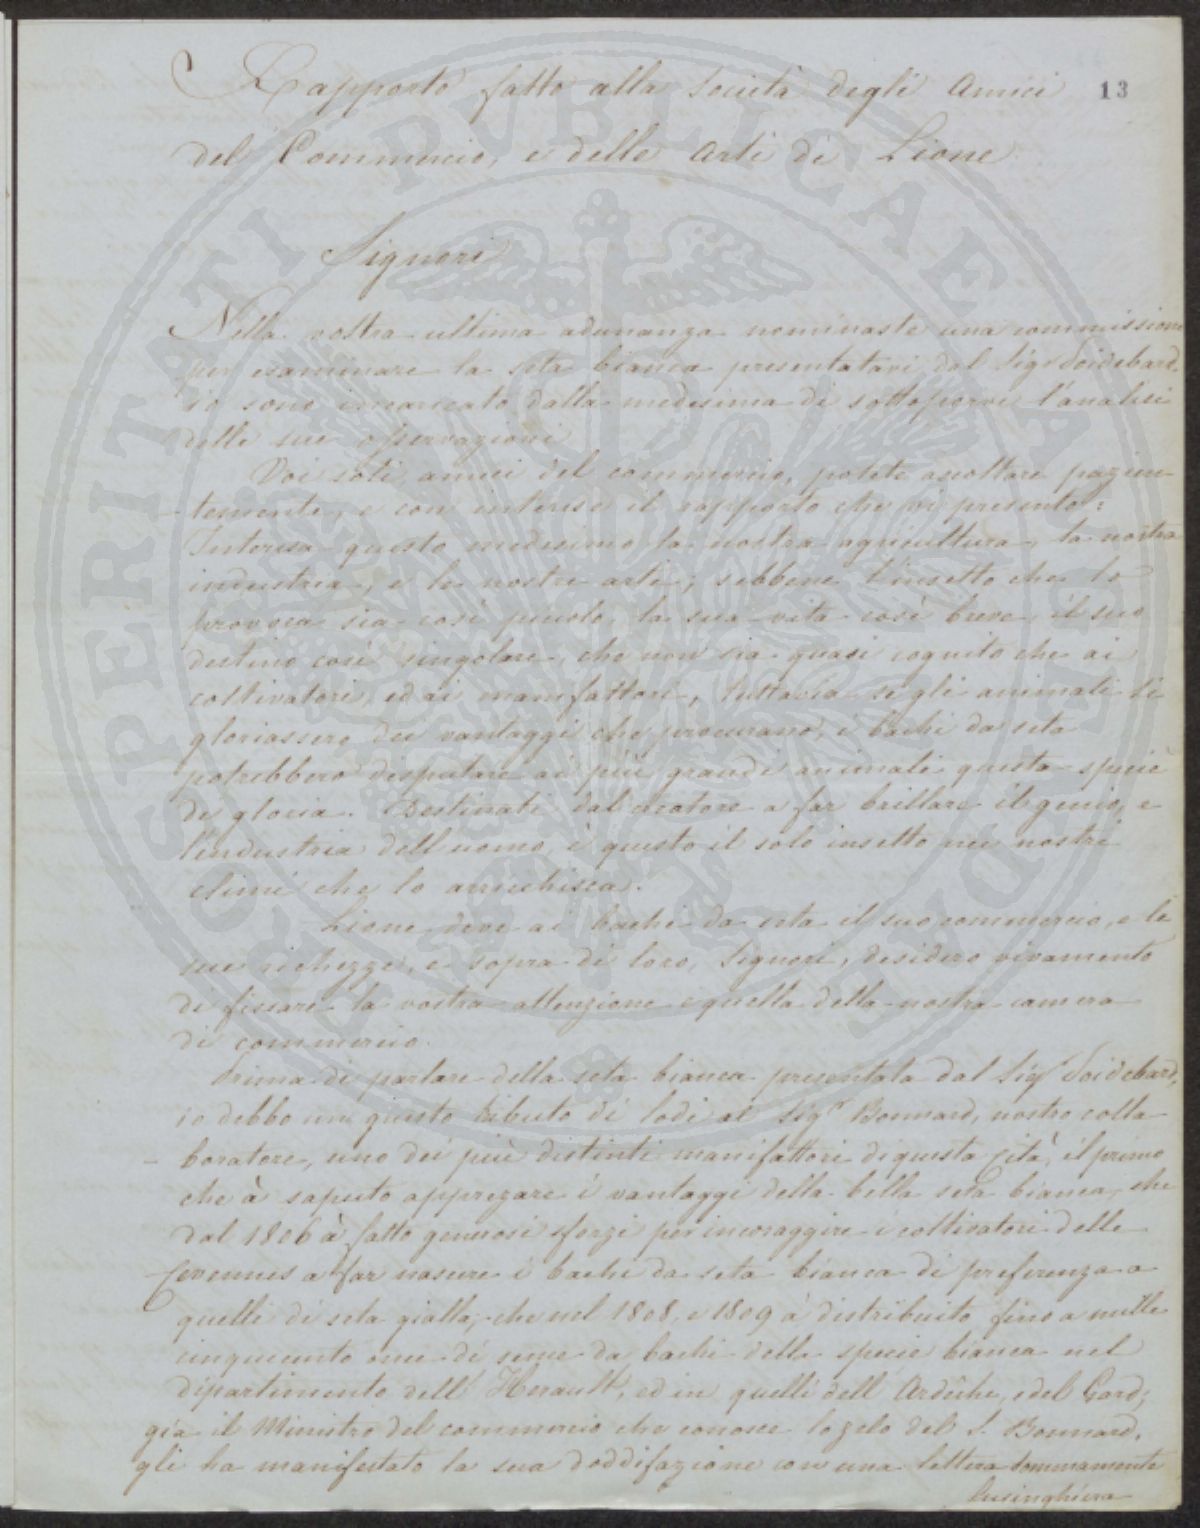 Rapporto fatto alla Società degli Amici
13
del Commercio, e delle Arti di Lione
Signori
Nella vostra ultima adunanza nominaste una commissione
per esaminare la seta bianca presentatavi dal Sig. Soidebard,
io sono incaricato dalla medesima di sottoporvi l'analisi
delle sue osservazioni
Voi soli, amici del commercio, potete ascoltare pazien-
-temente, e con interesse il rapporto che vi presento:
Interessa questo medesimo la nostra agricultura, la nostra
industria, e le nostre arti; sebbene l'insetto che lo
provoca sia così piccolo, la sua vita così breve, il suo
destino così singolare, che non sia quasi cognito che ai
coltivatori, ed ai manifattori, tuttavia se gli animali si
gloriassero dei vantaggi che procurano, i bachi da seta
potrebbero disputare ai più grandi animali questa specie
di gloria. Destinati dal creatore a far brillare il genio, e
l'industria dell'uomo, è questo il solo insetto nei nostri
climi che lo arricchisca.
Lione deve ai bachi da seta il suo commercio, e le
sue richezze, e sopra di loro, Signori, desidero vivamente
di fissare la vostra attenzione e quella della nostra camera
di commercio.
Prima di parlare della seta bianca presentata dal Sigr Soidebard,
io debbo un giusto tributo di lodi al Sigr Bonnard, nostro colla-
-boratore, uno dei più distinti manifattori di questa Città, il primo
che à saputo apprezare i vantaggi della bella seta bianca, che
dal 1806 à fatto generosi sforzi per incoraggire i coltivatori delle
Cevennes a far nascere i bachi da seta bianca di preferenza a
quelli di seta gialla; che nel 1808, e 1809 à distribuito fino a mille
cinquecento once di seme da bachi della specie bianca nel
dipartimento dell'Herault, ed in quelli dell'Ardêche, e del Gard;
già il Ministro del commercio che conosce lo zelo del S. Bonnard,
gli ha manifestato la sua soddifazione con una lettera sommamente
lusinghiera
PROSPERITATI PVBLICAE AVGENDAE